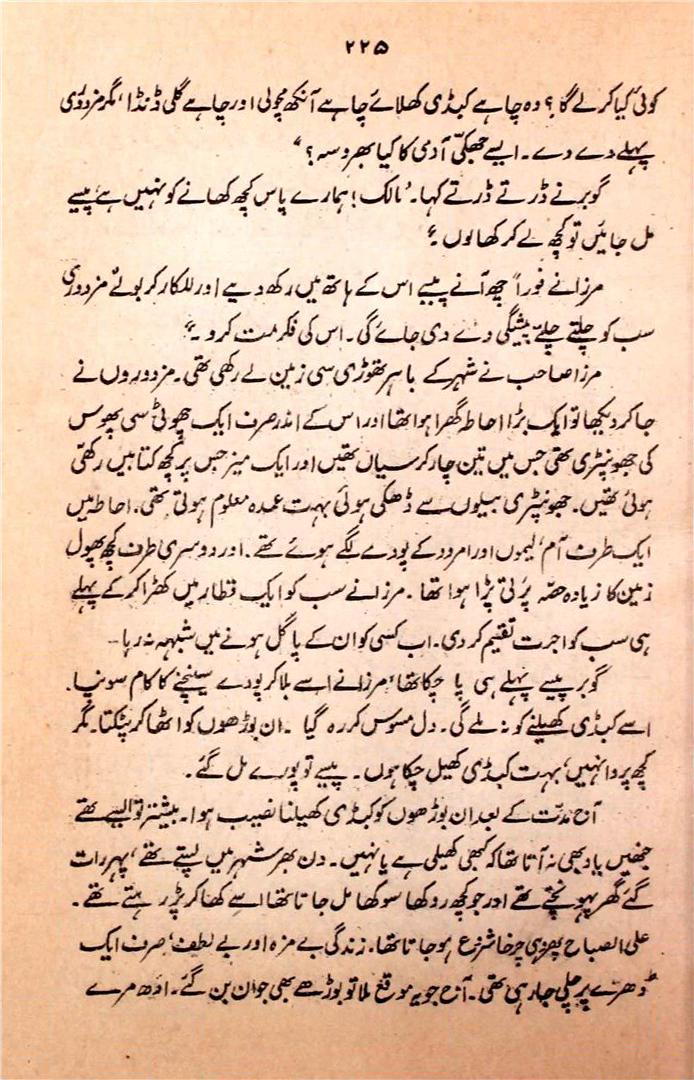 ۲۲۵
کوئی کیا کرلے گا؟ وہ چاہے کبڈی کھلائے چاہے آنکھ مچولی اور چاہے گلی ڈنڈا، مگر مزدوری
پہلے دے دے۔ ایسے جھکّی آدمی کا کیا بھروسہ؟“
گوبر نے ڈرتے ڈرتے کہا۔ ”مالک! ہمارے پاس کچھ کھانے کو نہیں ہے، پیسے
مل جائیں تو کچھ لے کر کھالوں۔“
مرزا نے فوراً چھ آنے پیسے اس کے ہاتھ میں رکھ دیے اور للکار کر بولے ”مزدوری
سب کو چلتے چلتے پیشگی دے دی جائے گی۔ اس کی فکر مت کرو۔“
مرزا صاحب نے شہر کے باہر تھوڑی سی زمین لے رکھی تھی۔ مزدوروں نے
جاکر دیکھا تو ایک بڑا احاطہ گھرا ہوا تھا اور اس کے اندر صرف ایک چھوٹی سی پھوس
کی جھونپڑی تھی جس میں تین چار کرسیاں تھیں اور ایک میز جس پر کچھ کتابیں رکھی
ہوئی تھیں۔ جھونپڑی بیلوں سے ڈھکی ہوئی بہت عمدہ معلوم ہوتی تھی۔ احاطہ میں
ایک طرف آم، لیموں اور امرود کے پودے لگے ہوئے تھے۔ اور دوسری طرف کچھ پھول
زمین کا زیادہ حصّہ پرتی پڑا ہوا تھا۔ مرزا نے سب کو ایک قطار میں کھڑا کرکے پہلے
ہی سب کو اجرت تقیم کر دی۔ اب کسی کو ان کے پاگل ہونے میں شبہہ نہ رہا۔
گوبر پیسے پہلے ہی پا چکا تھا، مرزا نے اسے بلاکر پودے سینچنے کا کام سونپا۔
اسے کبڈی کھیلنے کو نہ ملے گی۔ دل مسوس کر رہ گیا۔ ان بوڑھوں کو اٹھا کر پٹکتا۔ مگر
کچھ پروا نہیں، بہت کبڈی کھیل چکا ہوں۔ پیسے تو پورے مل گئے۔
آج مدّت کے بعد ان بوڑھوں کو کبڈی کھیلنا نصیب ہوا۔ بیشتر تو ایسے تھے
جنھیں یاد بھی نہ آتا تھا کہ کبھی کھیلی ہے یا نہیں۔ دن بھر شہر میں پستے تھے، پہر رات
گئے گھر پہونچتے تھے اور جو کچھ روکھا سوکھا مل جاتا تھا اسے کھا کر پڑ رہتے تھے۔
علی الصباح پھر وہی چرخا شروع ہوجاتا تھا۔ زندگی بے مزہ اور بے لطف، صرف ایک
ڈھرّے پر چلی جا رہی تھی۔ آج جو یہ موقع ملا تو بوڑھے بھی جوان بن گئے۔ ادھ مرے